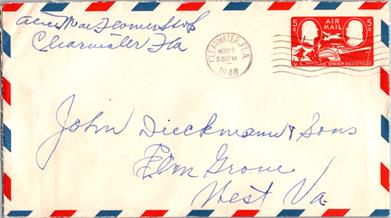 Clearwater Fla
CLEARWATER, FLA.
NOV 5
5 30 PM
1948
5¢ AIR MAIL 5¢
U.S. POSTAGE STAMP CENTENARY
John Dieckmann & Sons
Elm Grove
West Va.